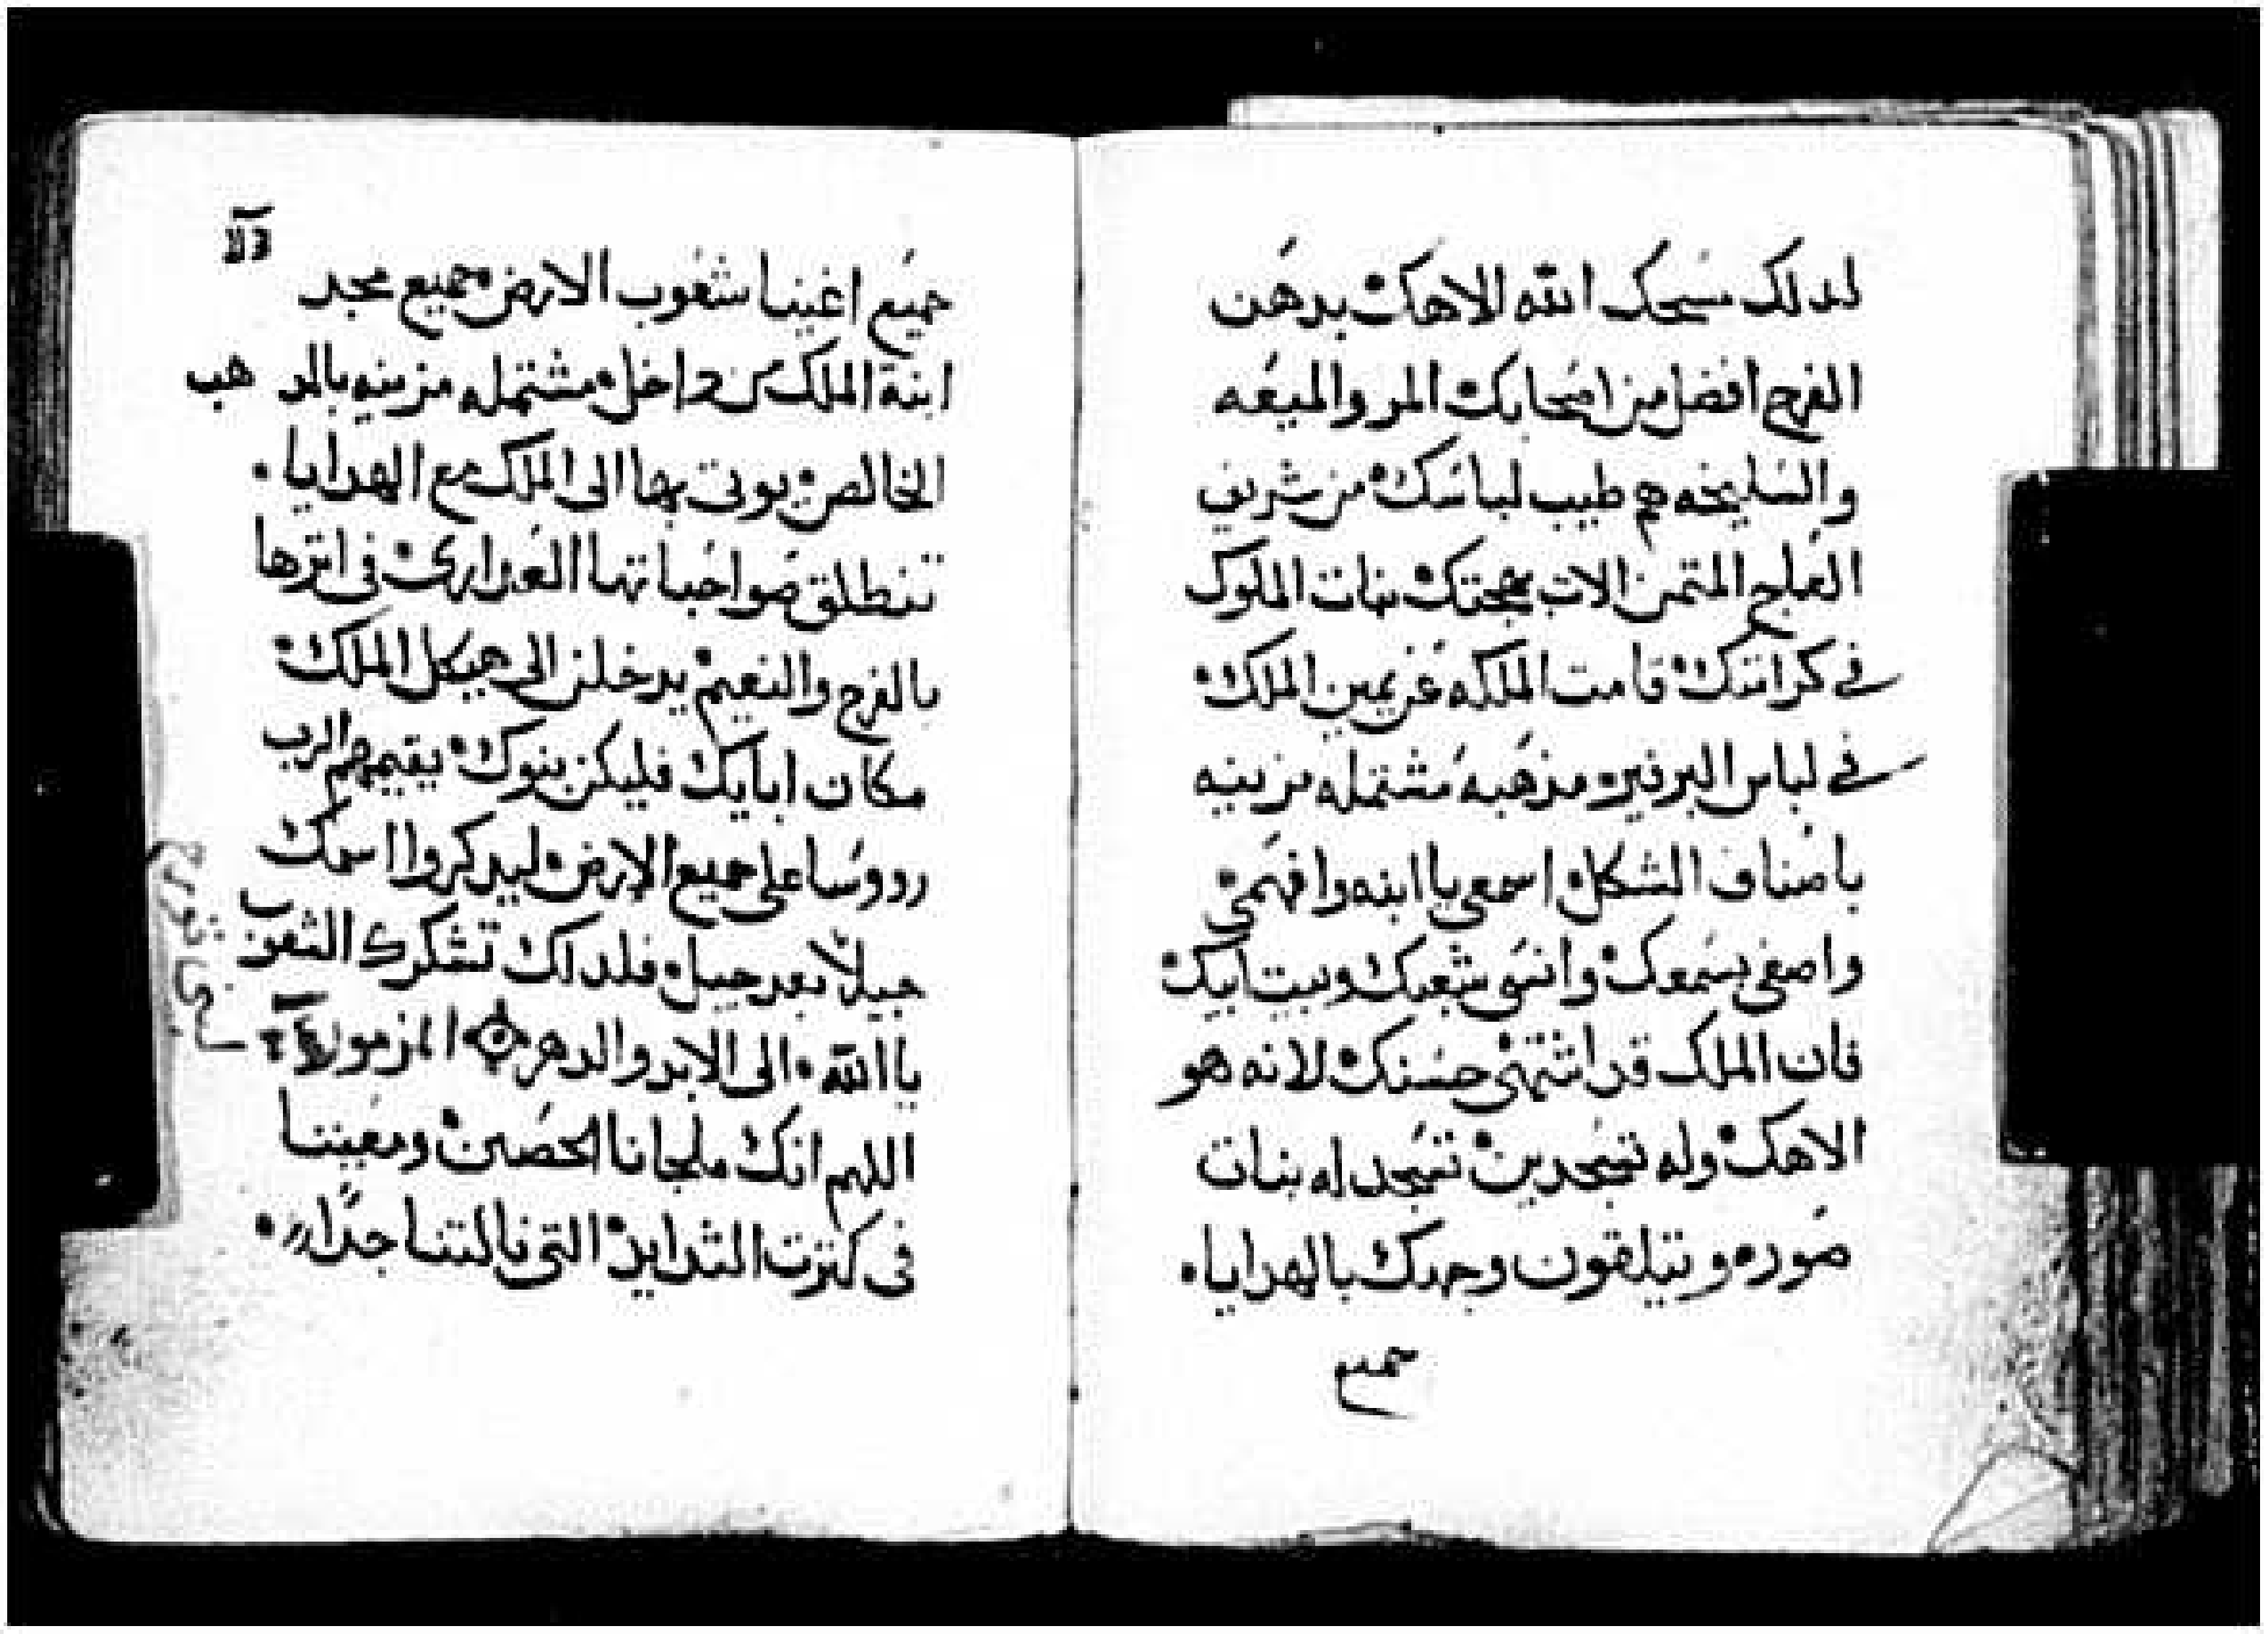 لدلك مسحك الله الاهك بدهن
الفرح افضل من اصحابك المر والميعه
والسليخه هم طيب لباسك من شريف
العاج المتمن الات بهجتك بنات الملوك
في كرامتك قامت الملكه عن يمين الملك
في لباس البرفير مدهبه مشتمله مزينه
باصناف الشكل اسمعي يا ابنه وافهمي
واصغي بسمعك وانسي شعبك وبيت ابيك
فان الملك قد اشتهى حسنك لانه هو
الاهك وله تسجدين تسجد له بنات
صوره ويتلقون وجهك بالهدايا
جميع
جميع اغنيا شعوب الارض جميع مجد
ابنة الملك من داخل مشتمله مزينه بالد هب
الخالص يوتى بها الى الملك مع الهدايا
تنطلق صواحباتها العدارى في اترها
بالفرح والنعيم يدخلن الى هيكل الملك
مكان ابايك فليكن بنوك يقيمهم الرب
رووسا على جميع الارض ليدكروا اسمك
جيلا بعد جيل فلدلك تشكرك الشعوب
يا الله الى الابد والدهر المزمور
اللهم انك ملجانا الحصين ومعيننا
في كترت الشدايد التي نالتنا جدا
لبني قورح